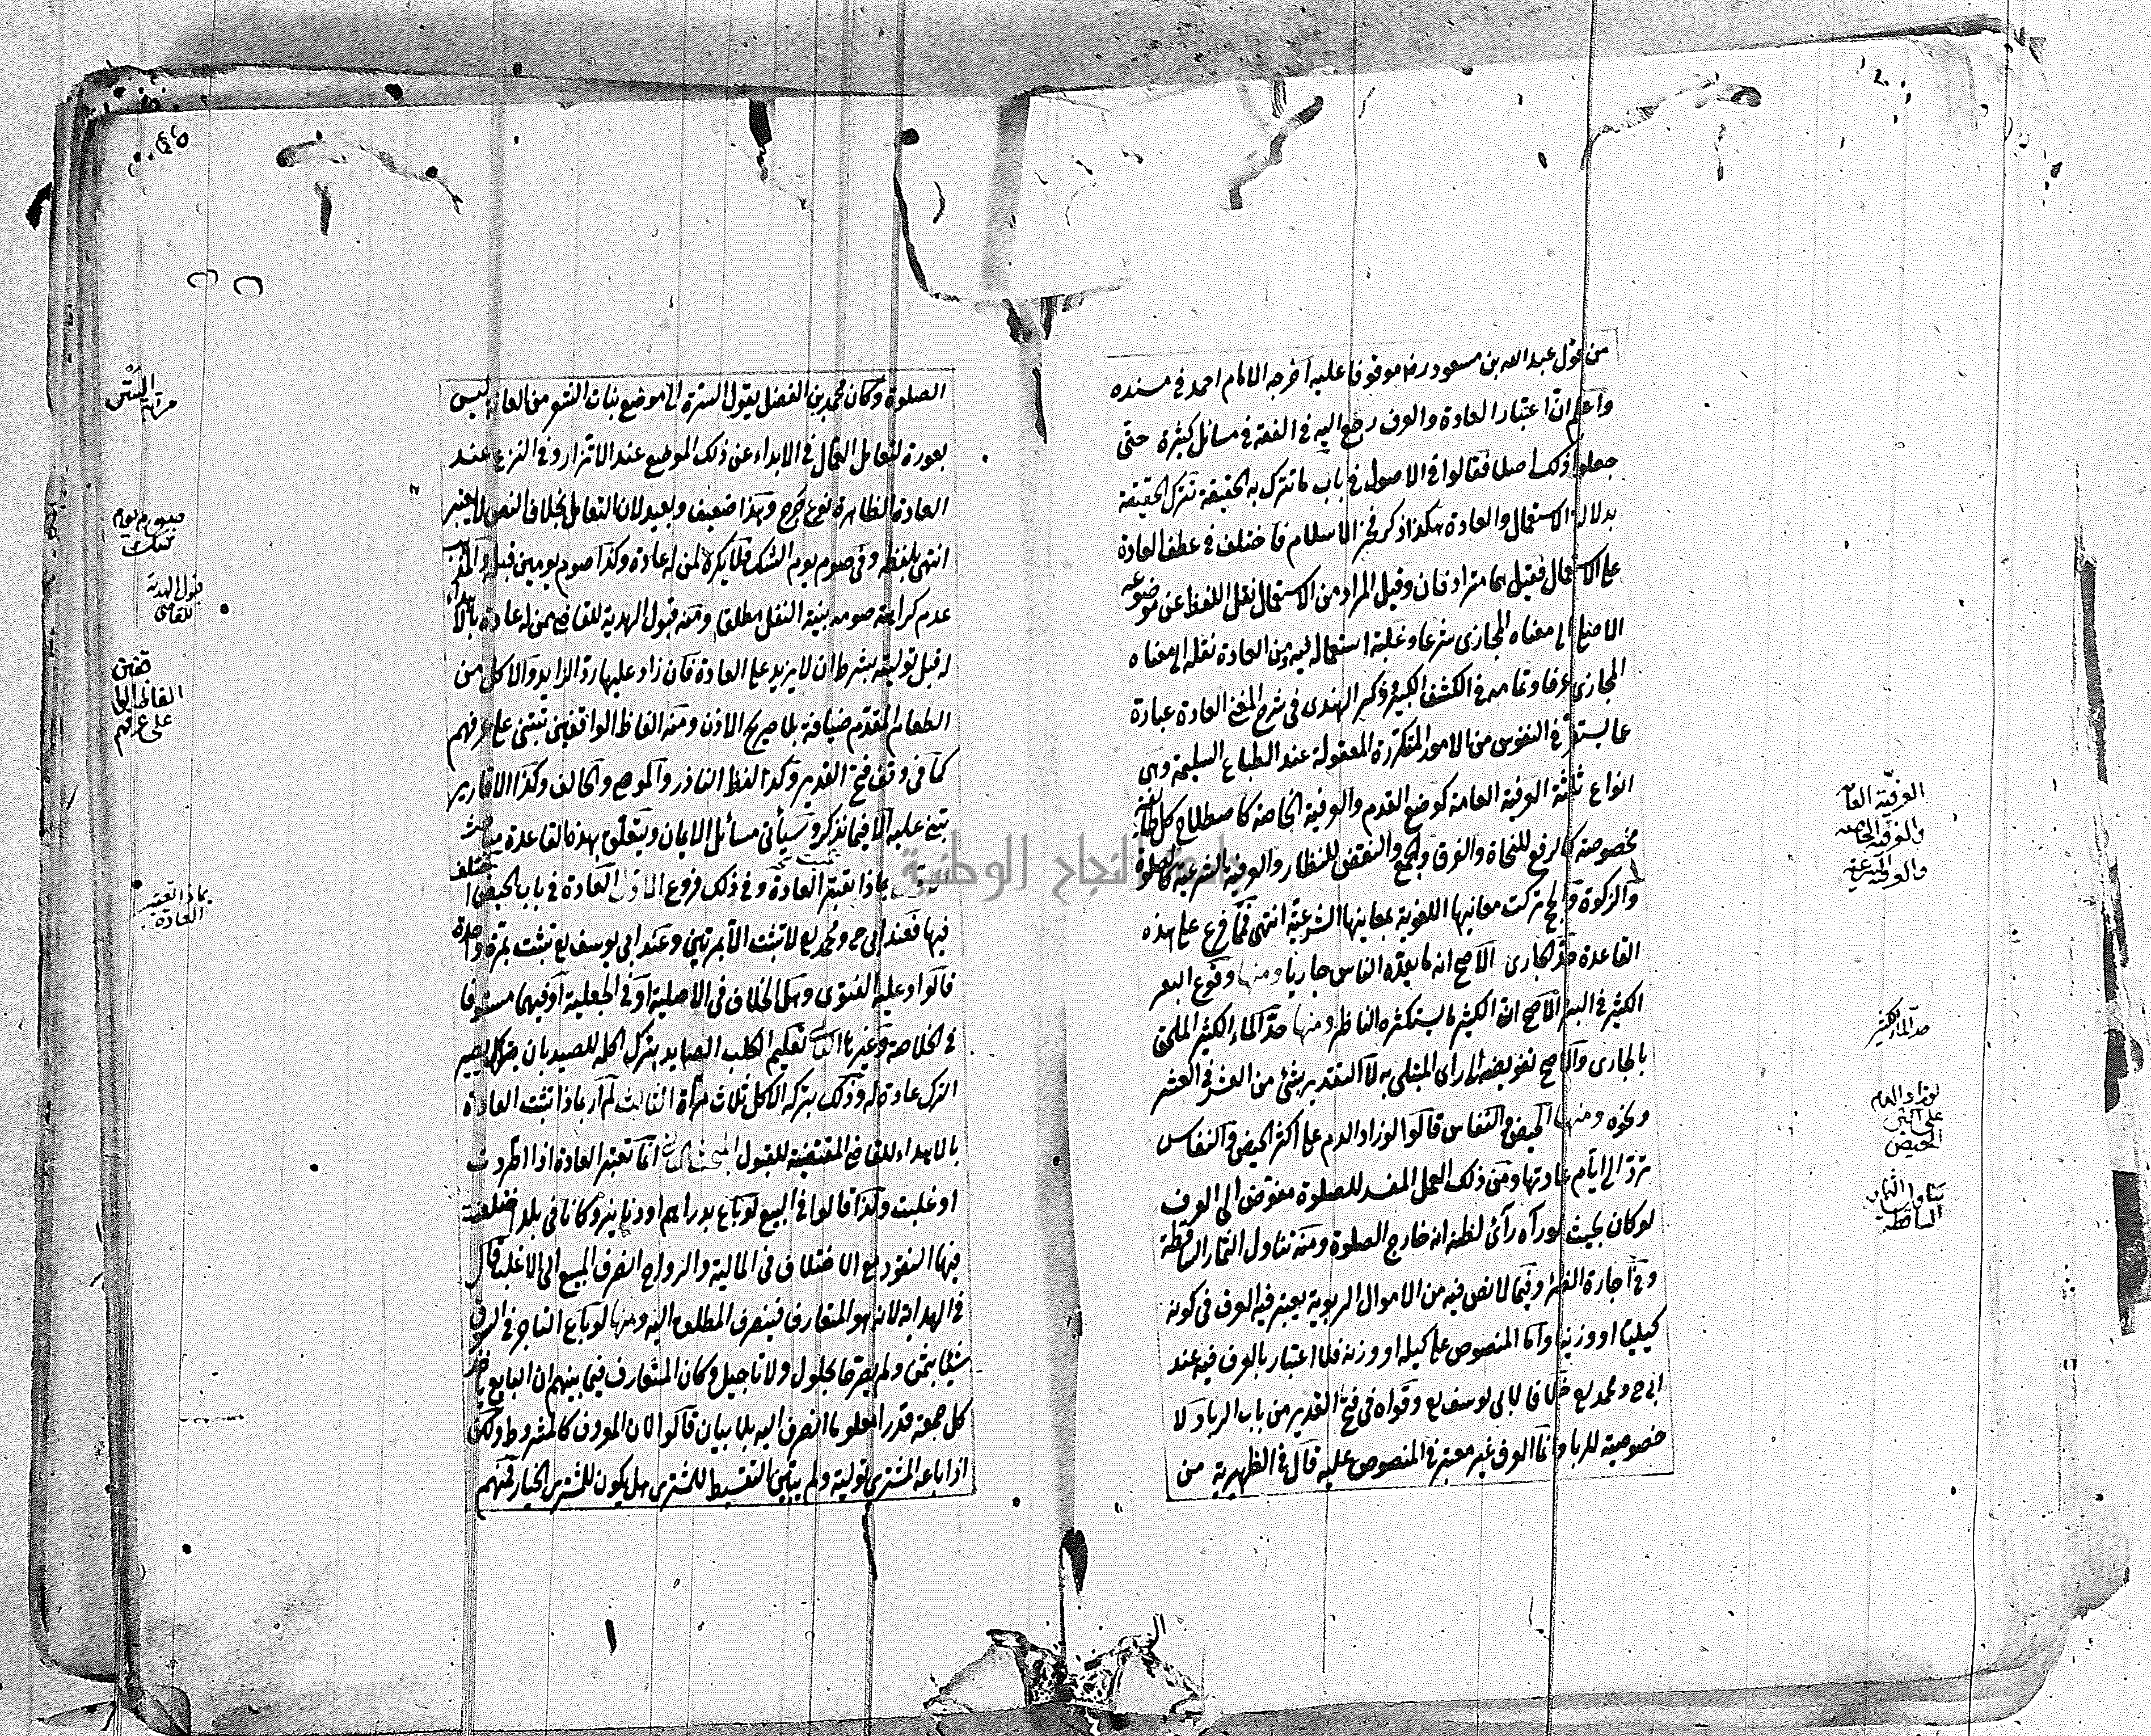 من قول عبد الله بن مسعود رضه موقوفا عليه اخرجه الامام احمد في مسنده
واعلم ان اعتبار العادة والعرف رجع اليه في الفقه في مسائل كثيرة حتى
جعلوا ذلك اصلا فقالوا في الاصول في باب ما تترك به الحقيقة تترك الحقيقة
بدلالة الاستعمال والعادة هكذا ذكر فخر الاسلام فاختلف في عطف العادة
على الاستعمال فقيل هما مترادفان وقيل المراد من الاستعمال نقل اللفظ عن موضوعه
الاصلي الى معناه المجازي شرعا وغلبة استعماله فيه ومن العادة نقله الى معناه
المجازي عرفا وتمامه في الكشف الكبير وذكر الهندي في شرح المغني العادة عبارة
عما يستقر في النفوس من الامور المتكررة المعقولة عند الطباع السليمة وهي
انواع ثلثة العرفية العامة كوضع القدم والعرفية الخاصة كاصطلاح كل طائفة
مخصوصة كالرفع للنحاة والفرق والجمع والنقض للنظار والعرفية الشرعية كالصلوة
والزكوة والحج تركت معانيها اللغوية بمعانيها الشرعية انتهى فمما فرع على هذه
القاعدة حد الجاري الاصح انه ما يعده الناس جاريا ومنها وقوع البعر
الكثير في البئر الاصح ان الكثير ما يستكثره الناظر ومنها حد الماء الكثير الملحق
بالجاري والاصح تفويضه الى رأي المبتلى به لا التقدير بشئ من العشر في العشر
ونحوه ومنها الحيض والنفاس قالوا لو زاد الدم على اكثر الحيض والنفاس
ترد الى ايام عادتها ومن ذلك العمل المفسد للصلوة مفوض الى العرف
لو كان بحيث لو رآه رآئي لظنه انه خارج الصلوة ومنه تناول الثمار الساقطة
وفي اجارة الظئر وفيما لا نص فيه من الاموال الربوية يعتبر فيه العرف في كونه
كيليا او وزنيا واما المنصوص على كيله او وزنه فلا اعتبار بالعرف فيه عند
ابي ح ومحمد رح خلافا لابي يوسف رح وقواه في فتح القدير من باب الربا ولا
خصوصية للربا وانما العرف غير معتبر في المنصوص عليه قال في الظهيرية من
العرفية العامة
والعرفية الخاصة
والعرفية الشرعية
حد الماء الكثير
لو زاد الدم
على اكثر
الحيض
تناول الثمار
الساقطة
الصلوة وكان محمد بن الفضل يقول السترة الى موضع نبات الشعر من العانة ليس
بعورة لتعامل العمال في الابداء عن ذلك الموضع عند الاتزار وفي النزع عند
العادة الظاهرة نوع حرج وهذا ضعيف وبعيد لان التعامل بخلاف النص لا يعتبر
انتهى بلفظه وفي صوم يوم الشك فلا يكره لمن له عادة وكذا صوم يومين قبله والمذهب
عدم كراهة صومه بنية النفل مطلقا ومنه قبول الهدية للقاضي ممن له عادة بالاهداء
له قبل توليته بشرط ان لا يزيد على العادة فان زاد عليها رد الزايد والاكل من
الطعام المقدم ضيافة بلا صريح الاذن ومنه الفاظ الواقفين تبتنى على عرفهم
كما في وقف فتح القدير وكذا لفظ الناذر والموصي والحالف وكذا الاقارير
تبنى عليه الا فيما نذكر وسيأتي مسائل الايمان ويتعلق بهذه القاعدة مباحث
بماذا تعتبر العادة وفي ذلك فروع الاول العادة في باب الحيض اختلف
فيها فعند ابي ح ومحمد رح لا تثبت الا بمرتين وعند ابي يوسف رح تثبت بمرة واحدة
قالوا وعليه الفتوى وهل الخلاف في الاصلية او في الجعلية او فيهما مستوفا
في الخلاصة وغيرها الثاني تعليم الكلب الصايد بترك اكله للصيد بان يصير
الترك عادة له وذلك بتركه الاكل ثلاث مراة الثالث لم ار بماذا تثبت العادة
بالاهداء للقاضي المقتضية للقبول المبحث الثاني انما تعتبر العادة اذا اطردت
او غلبت ولذا قالوا في البيع لو باع بدراهم او دنانير وكانا في بلد اختلفت
فيها النقود مع الاختلاف في المالية والرواج انصرف البيع الى الاغلب قال
في الهداية لانه هو المتعارف فينصرف المطلق اليه ومنها لو باع التاجر في السوق
شيئا بثمن ولم يصرحا بحلول ولا تاجيل وكان المتعارف فيما بينهم ان البايع ياخذ
كل جمعة قدرا معلوما انصرف اليه بلا بيان قالوا لان المعروف كالمشروط ولكن
اذا باعه المشتري تولية ولم يبين التقسيط للمشتري هل يكون للمشتري الخيار فمنهم
صوم يوم
شك
قبول الهدية
للقاضي
على عرفهم
بماذا تعتبر
العادة
جامعة النجاح الوطنية